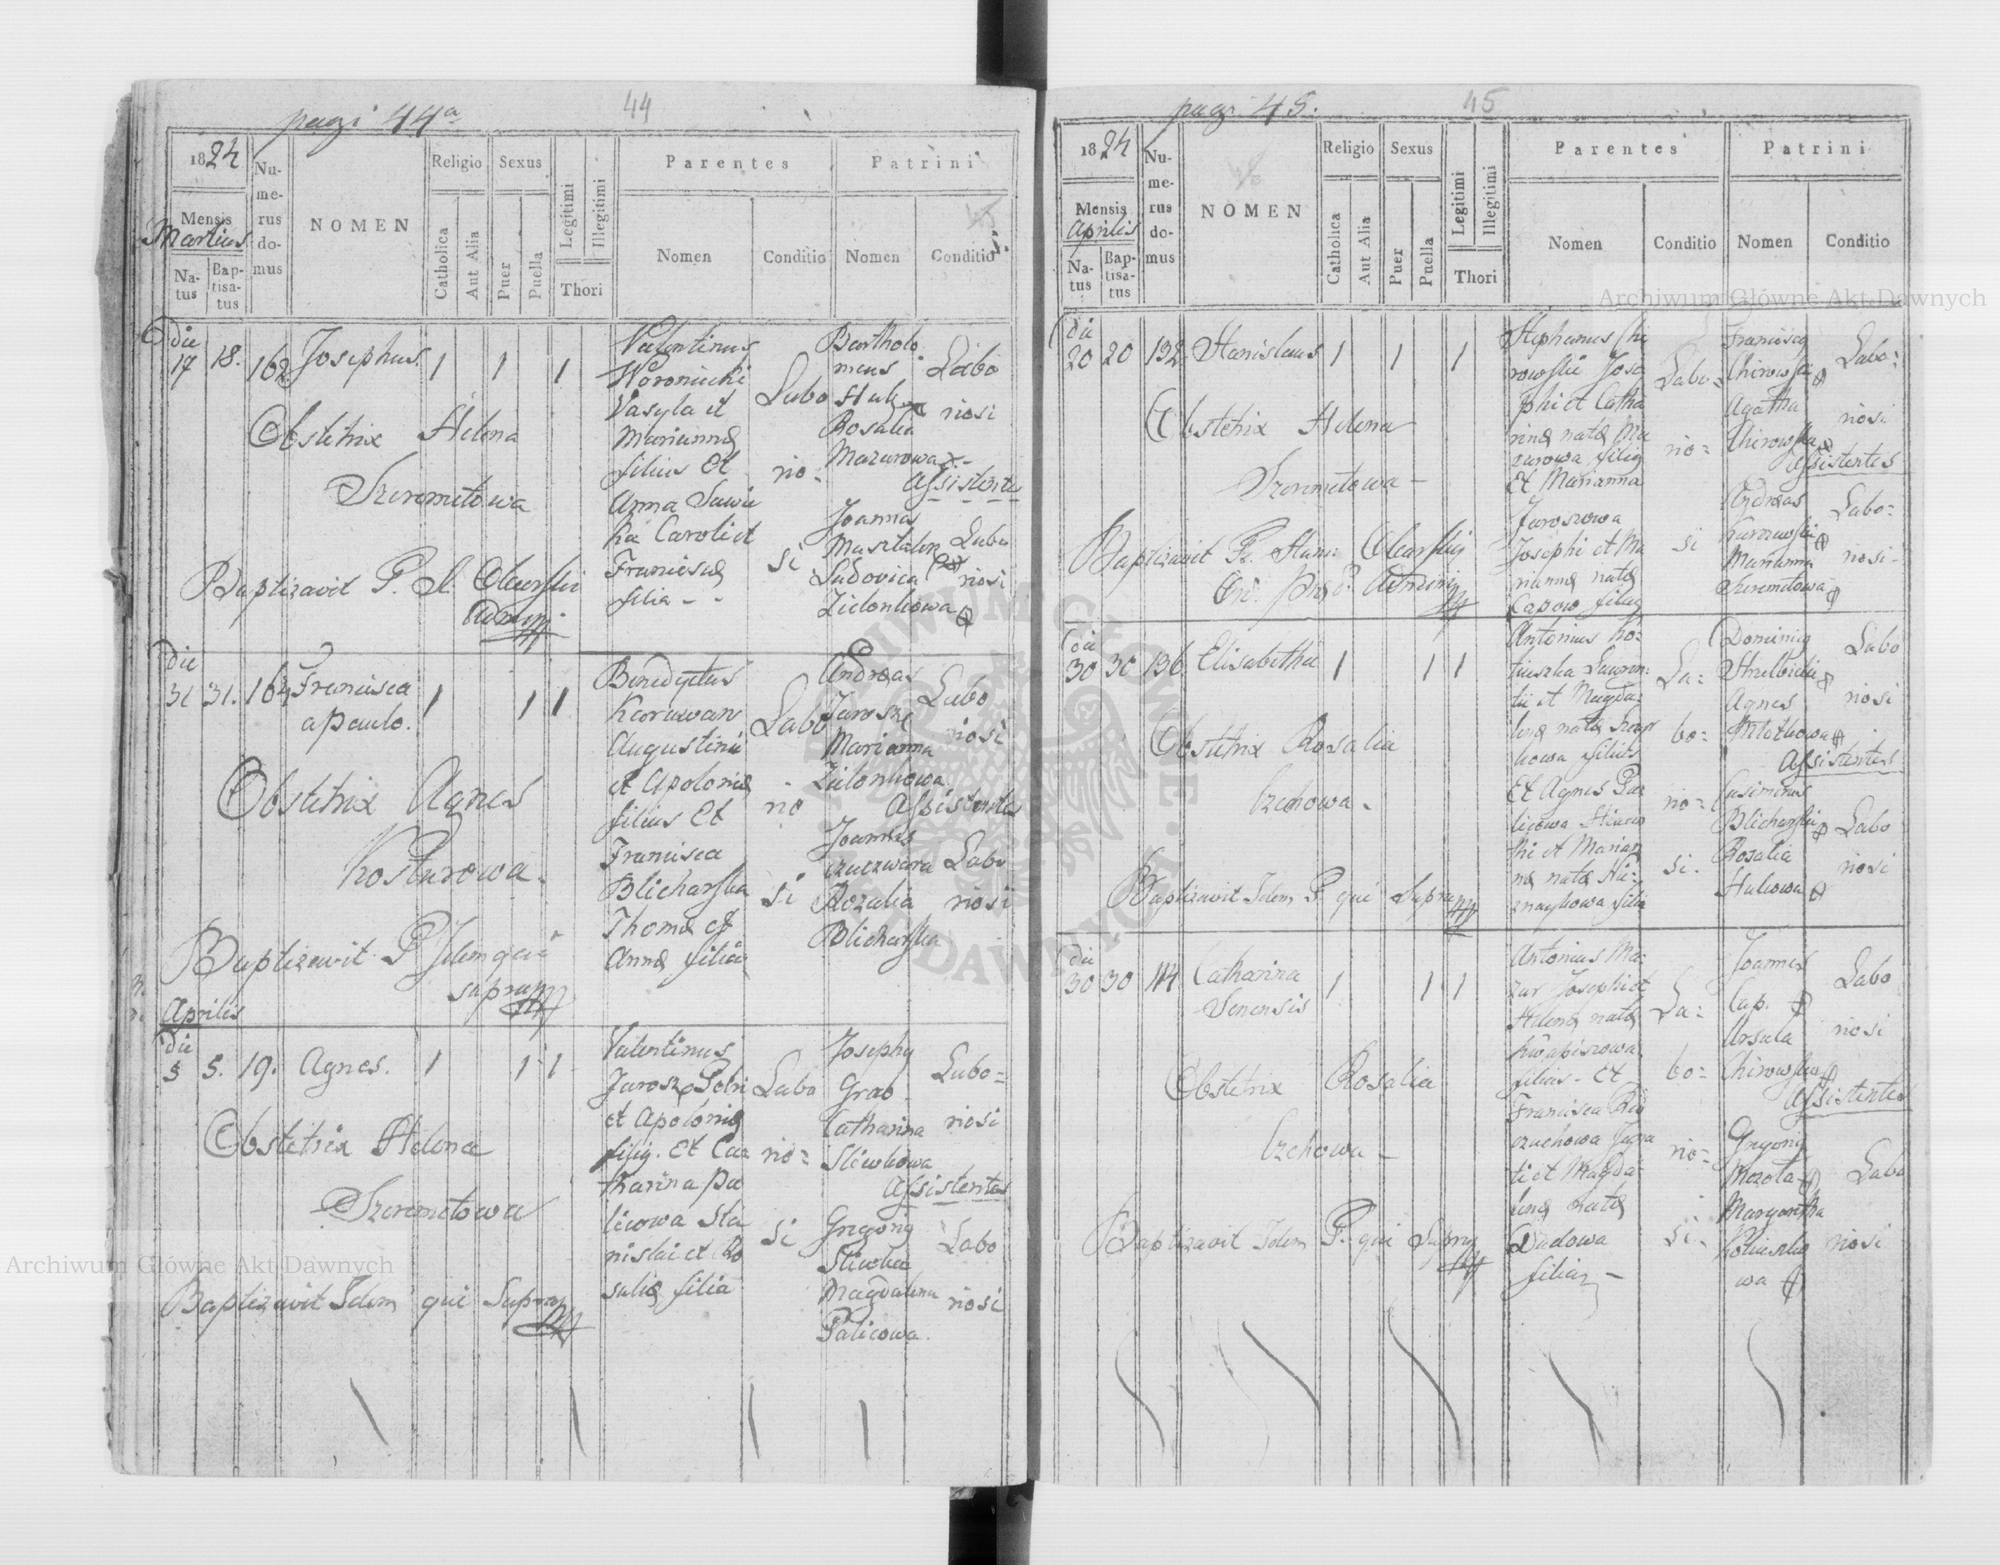 pagi 44a
44
1824
Mensis
Martius
Na-
tus
Bap-
tisa-
tus
Nu-
me-
rus
do-
mus
NOMEN
Religio
Catholica
Aut Alia
Sexus
Puer
Puella
Legitimi
Illegitimi
Thori
Parentes
Nomen
Conditio
Patrini
Nomen
Conditio
die
17 18. 162 Josephus. 1 1 1
Obstetrix Helena
Szeremetowa
Baptizavit P. S.
Valentinus
Woronicki
Vasyla et
Mariannę
filius Et
Anna
Caroli et
Franciscę
filia - -
Labo
rio-
si
Bartholo
meus
Huk
Rosalia
Mazurowa
Labo
riosi
Assistente
Joannes
Ludovica
Zielonkowa
Labo
riosi
die
31 31. 164 Francisca 1 1 1
a paulo.
Obstetrix Agnes
Kosturowa.
Baptizavit P Idem qui
supra
Benedyctus
Karawan
Augustini
et Apolonię
filius Et
Francisca
Blicharska
Thomę et
Annę filia
Labo
rio
si
Andreas
Jarosz
Marianna
Zielonkowa
Labo
riosi
Assistentes
Joannes
Rozalia
Blicharska
Labo
riosi
Aprilis
die
5 5. 19. Agnes. 1 1 1
Obstetrix Helena
Szeremetowa
Baptizavit Idem qui Supra
Valentinus
Jarosz Petri
et Apolonię
filig. Et Ca
tharina Pa
licowa Sta
nislai et Ro
salię filia
Labo
rio-
si
Josephg
Grab
Catharina
Sliwkowa
Labo-
riosi
Assistentes
Gregorig
Sliwka
Magdalena
Palicowa.
Labo
riosi
pagi 45.
45
1824
Mensis
Aprilis
Na-
tus
Bap-
tisa-
tus
Nu-
me-
rus
do-
mus
NOMEN
Religio
Catholica
Aut Alia
Sexus
Puer
Puella
Legitimi
Illegitimi
Thori
Parentes
Nomen
Conditio
Patrini
Nomen
Conditio
die
20 20 132 Stanislaus 1 1 1
Obstetrix Helena
Szeremetowa -
Baptizavit
Stephanus Chi
rowski Jose
phi et Catha
rinę natę Ma
zurowa filig
Et Marianna
Jaroszowa
Josephi et Ma
riannę natę
Labo-
rio-
si
Franciscg
Chirowski
Agatha
Chirowska
Labo-
riosi
Assistentes
Andreas
Marianna
Szeremetowa
Labo-
riosi-
die
30 30 136. Elisabetha 1 1 1
Obstetrix Rosalia
Czchowa -
Baptizavit Idem P qui Supra
Antonius Ko-
ciuszka Lauren-
tii et Magda-
lenę natę
kowa filius
Et Agnes Pa
licowa
thi et Marian
nę natę
filia
La-
bo-
rio-
si.
Dominig
Strelbicki
Agnes
Labo
riosi
Assistentes
Casimirus
Blicharski
Rosalia
Hukowa
Labo
riosi
die
30 30 114 Catharina 1 1 1
Senensis
Obstetrix Rosalia
Czchowa -
Baptizavit Idem P. qui Supra
Antonius Ma-
zur Josephi et
Helenę natę
filius - Et
Francisca
ti et Magda-
lenę natę
Dudowa
filia -
La-
bo-
rio-
si-
Joannes
Cap.
Ursula
Chirowska
Labo
riosi
Assistentes
Gregorig
Mozola
Margaretha
Kociuszko
wa
Labo
riosi
Archiwum Główne Akt Dawnych
Archiwum Główne Akt Dawnych
ARCHIWUM GŁÓWNE AKT DAWNYCH